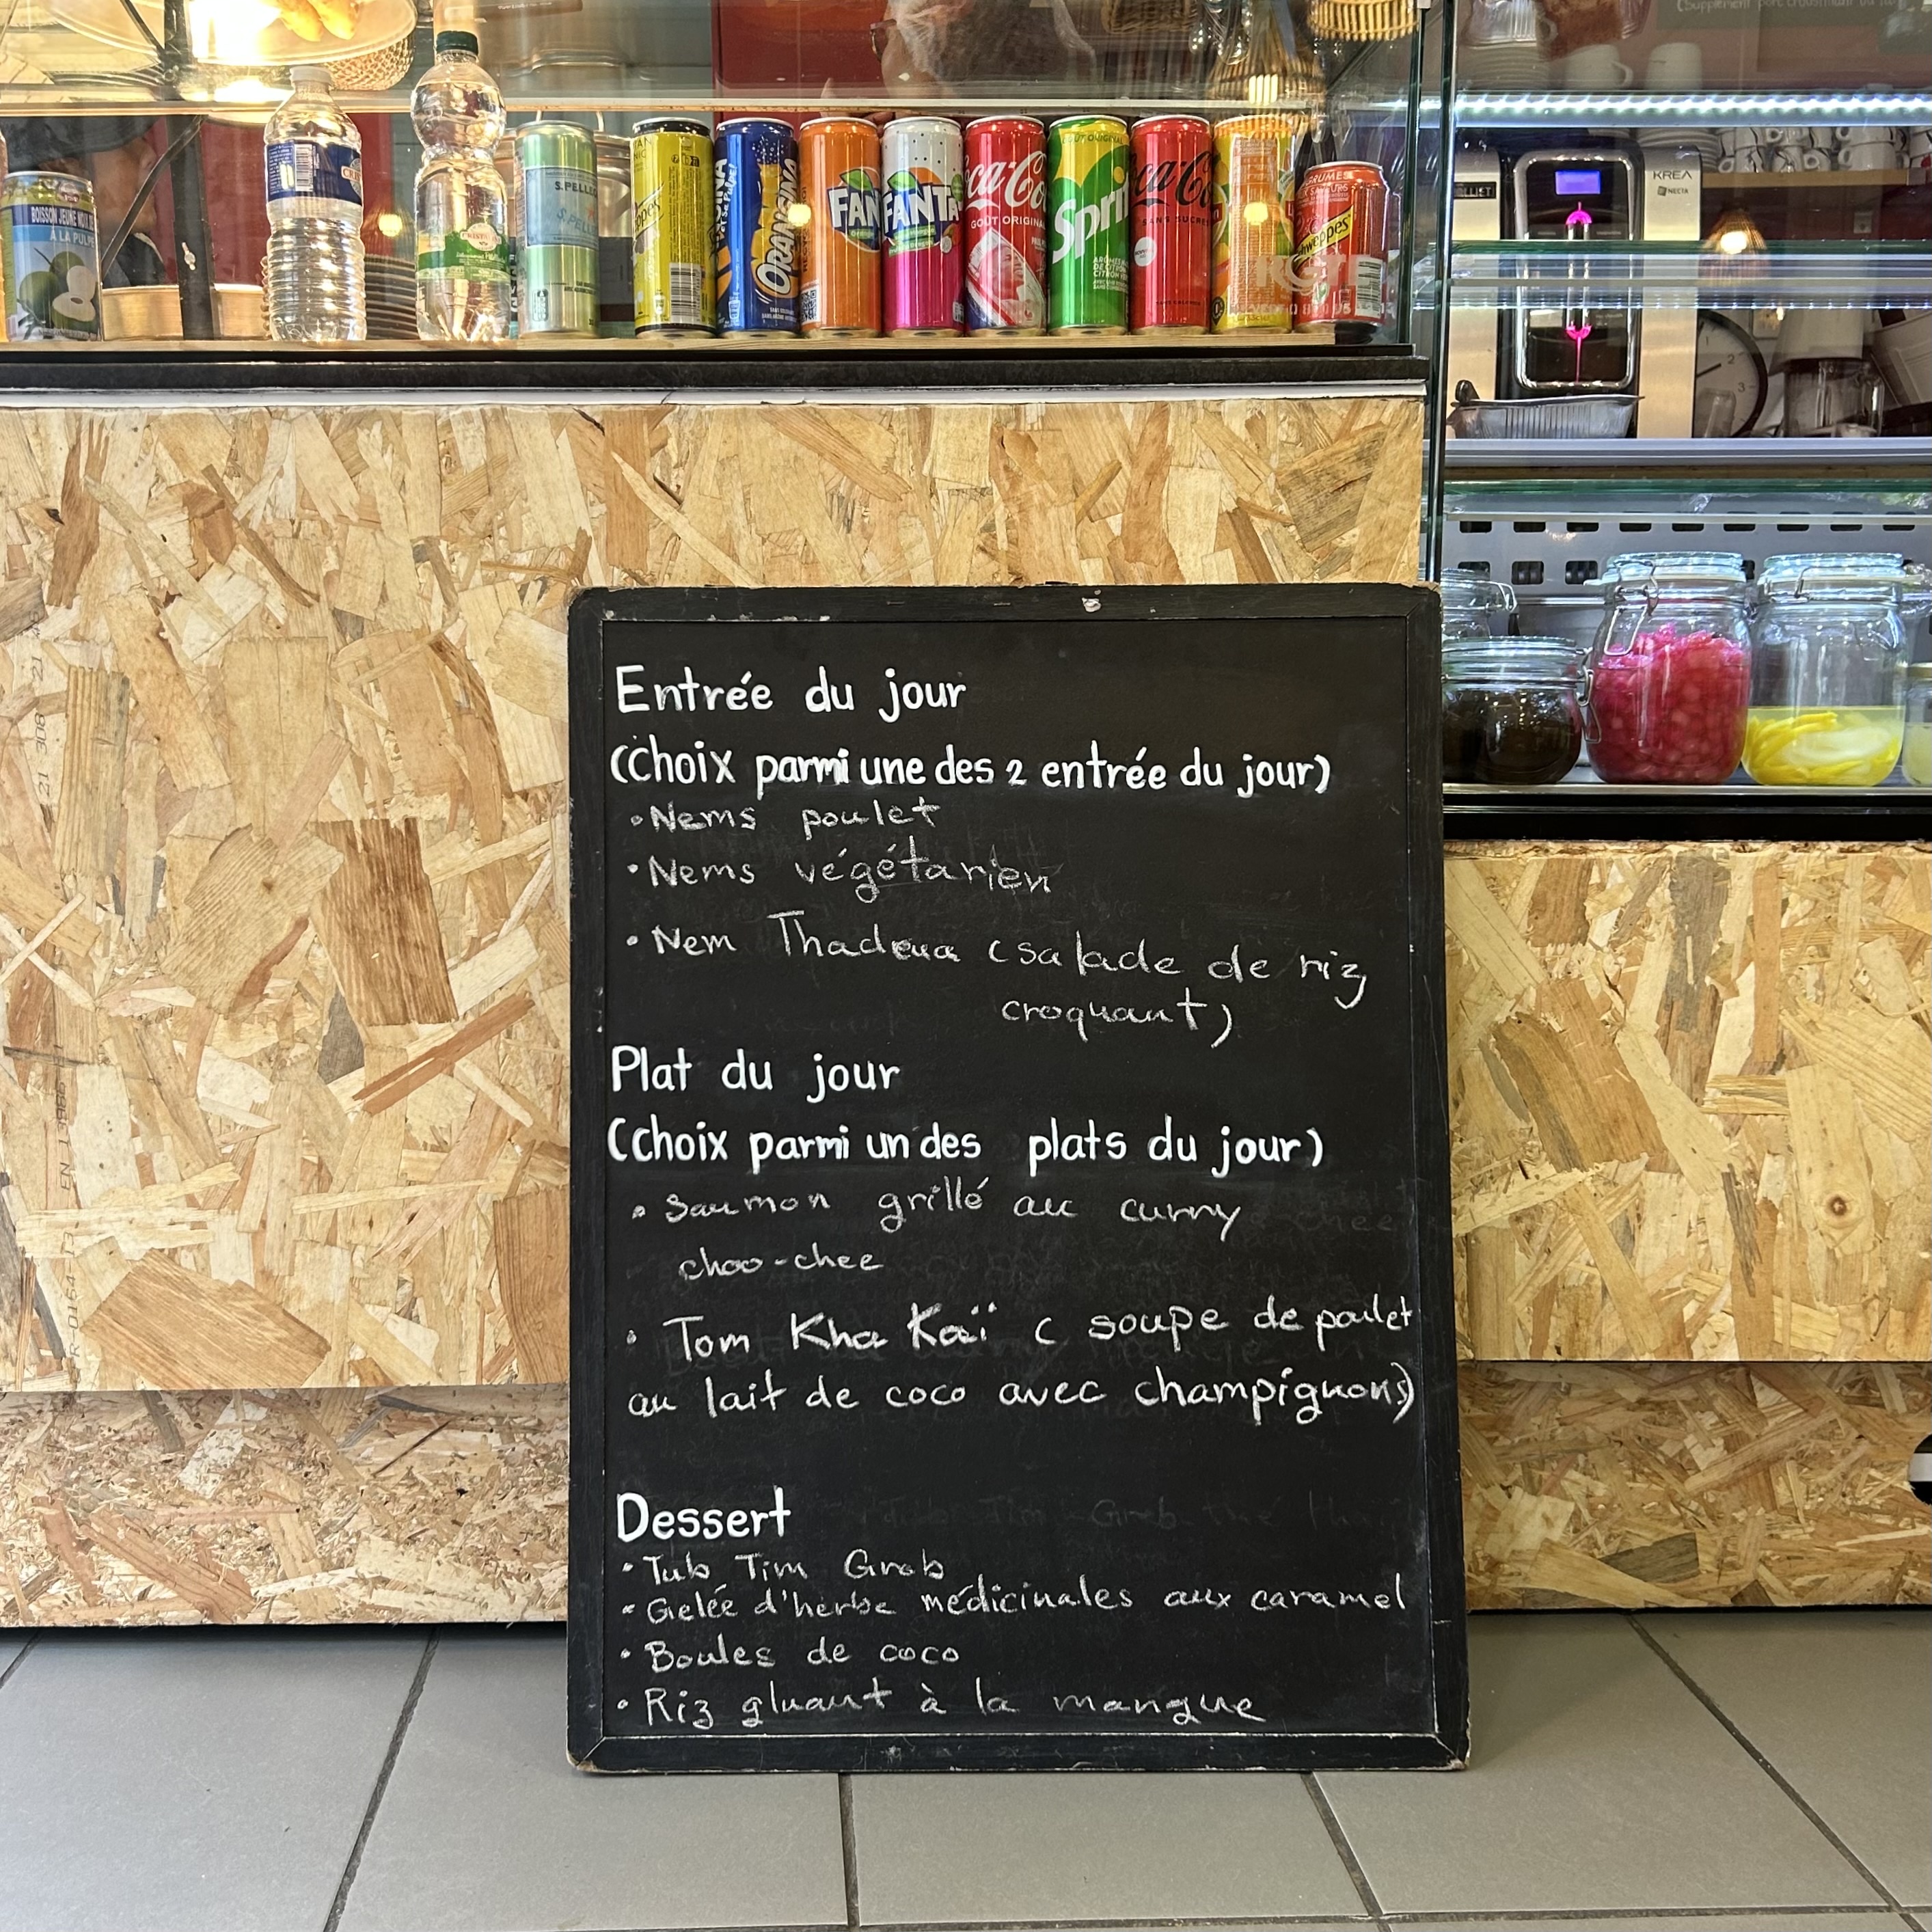 (Supplément porc croustillant
BOISSON JEUNE NOIX DE
À LA PULPE
CRISTALINE
S.PELLEGRINO
S.PELLE
ORANGINA
FANTA
FANTA
Coca-Cola
GOÛT ORIGINAL
GOÛT ORIGINAL
Sprite
Coca-Cola
SANS SUCRES
AGRUMES
Schweppes
KREA
NECTA
2
3
Entrée du jour
(Choix parmi une des 2 entrée du jour)
• Nems poulet
• Nems végétarien
• Nem Thadeua (salade de riz
croquant)
Plat du jour
(Choix parmi un des plats du jour)
• Saumon grillé au curry
choo-chee
• Tom Kha Kaï ( soupe de poulet
au lait de coco avec champignons)
Dessert
• Tub Tim Grob
• Gelée d'herbe médicinales aux caramel
• Boules de coco
• Riz gluant à la mangue